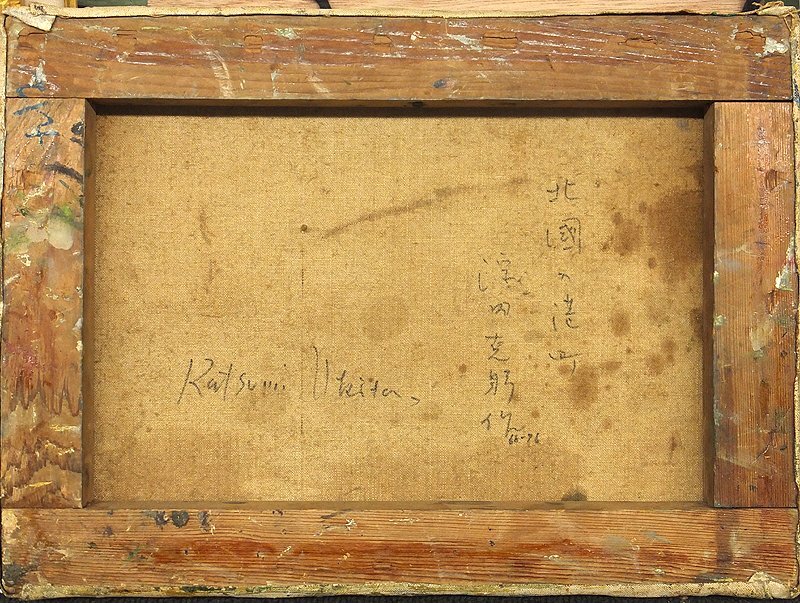 北國の港町
浮田克躬作
Katsumi Ukita